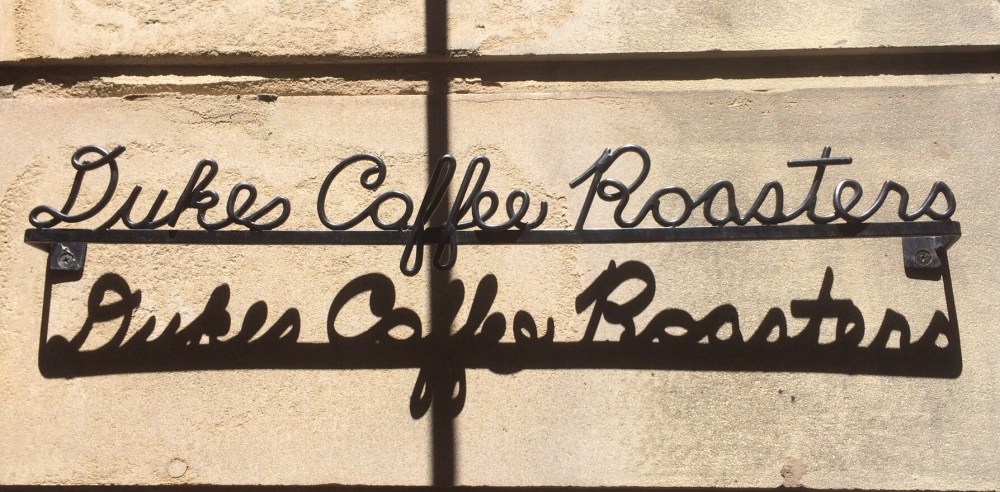 Dukes Coffee Roasters